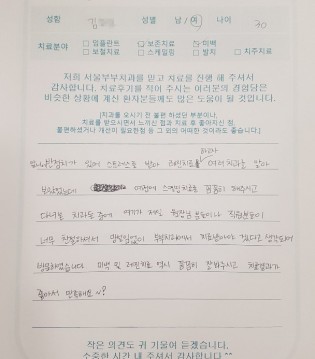 성함 김 성별 남 / 여 나이 70
치료분야 □ 임플란트 □ 보존치료 □ 미백
□ 보철치료 □ 스케일링 □ 발치 □ 치주치료
저희 서울부부치과를 믿고 치료를 진행 해 주셔서
감사합니다. 치료후기를 적어 주시는 여러분의 경험담은
비슷한 상황에 계신 환자분들께도 많은 도움이 될 것입니다.
치과를 오시기 전 불편 하셨던 부분이나,
치료를 받으시면서 느끼신 점과 치료 후 좋아지신 점,
불편하셨거나 개선이 필요한점 등 그 외의 어떠한 것이라도 좋습니다.
있어 스트레스를 받아 레진치료 여러치과를 찾아
보았었는데 예전에 스케일링치료를 꼼꼼히 해주시고
다녀본 치과들 중에 여기가 제일 원장님 분들이나 직원분들이
너무 친절하셔서 망설임없이 부부치과에서 치료받아야 겠다고 생각되어
방문하였습니다 미백 및 레진치료 역시 꼼꼼히 잘해주시고 치료결과가
좋아서 만족해요~?
작은 의견도 귀 기울여 듣겠습니다.
소중한 시간 내 주셔서 감사합니다^^